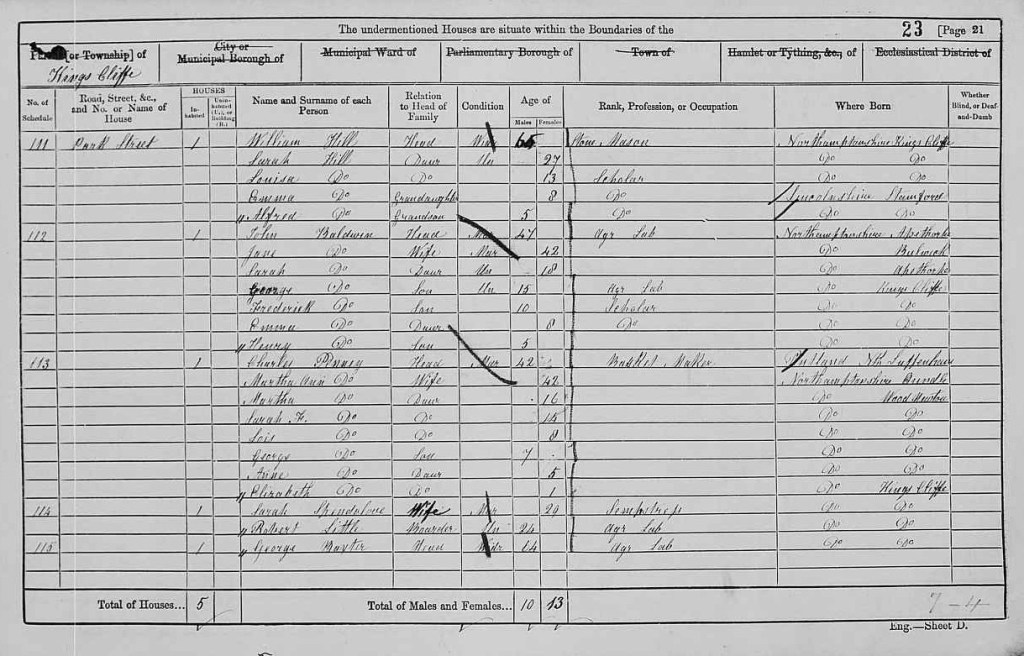 The undermentioned Houses are situate within the Boundaries of the 23 [Page 21
[or Township] of City or Municipal Borough of Municipal Ward of Parliamentary Borough of Town of Hamlet or Tything, &c., of Ecclesiastical District of
Kings Cliffe
No. of Schedule Road, Street, &c., and No. or Name of House HOUSES Inhabited Uninhabited (U.), or Building (B.) Name and Surname of each Person Relation to Head of Family Condition Age of Males Females Rank, Profession, or Occupation Where Born Whether Blind, or Deaf-and-Dumb
111 Park Street 1 William Hill Head 65 Stone Mason Northamptonshire Kings Cliffe
Sarah Hill Daur Un 27 Do Do
Louisa Do Do 13 Scholar Do Do
Emma Do Grandaughter 8 Do Lincolnshire Stamford
Alfred Do Grandson 5 Do Do Do
112 1 John Baldwin Head Mar 47 Agr Lab Northamptonshire Apethorpe
Jane Do Wife Mar 42 Do Bulwick
Sarah Do Daur Un 18 Do Apethorpe
George Do Son Un 15 Agr Lab Do Kings Cliffe
Frederick Do Son 10 Scholar Do Do
Emma Do Daur 8 Do Do Do
Henry Do Son 5 Do Do
113 1 Charles Pinney Head Mar 42 Basket Maker Rutland Nth Luffenham
Martha Ann Do Wife 42 Northamptonshire Oundle
Martha Do Daur 16 Do Wood Newton
Sarah F. Do Do 15 Do Do
Lois Do Do 8 Do Do
George Do Son 7 Do Do
Anne Do Daur 5 Do Do
Elizabeth Do Do 1 Do Kings Cliffe
114 1 Sarah Spendolove Wife Mar 29 Sempstress Do Do
Robert Little Boarder Un 24 Agr Lab Do Do
115 1 George Baxter Head Widr 64 Agr Lab Do Do
Total of Houses... 5 Total of Males and Females... 10 13 7 - 4
Eng.—Sheet D.